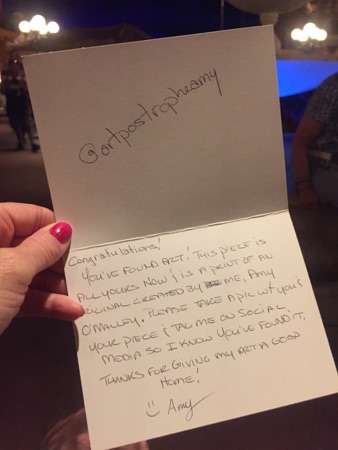 @artpostropheamy
Congratulations!
You've found art! This piece is
all yours now & is a print of an
original created by me, Amy
O'Malley. Please take a pic w/ you &
your piece & tag me on social
media so I know you've found it.
Thanks for giving my art a good
home!
Amy